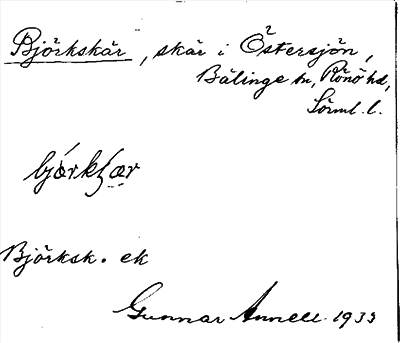 Björkskär, skär i Östersjön,
Bälinge sn, Rönö hd,
Sörml. l.
Björksk. ek
Gunnar Annell 1933